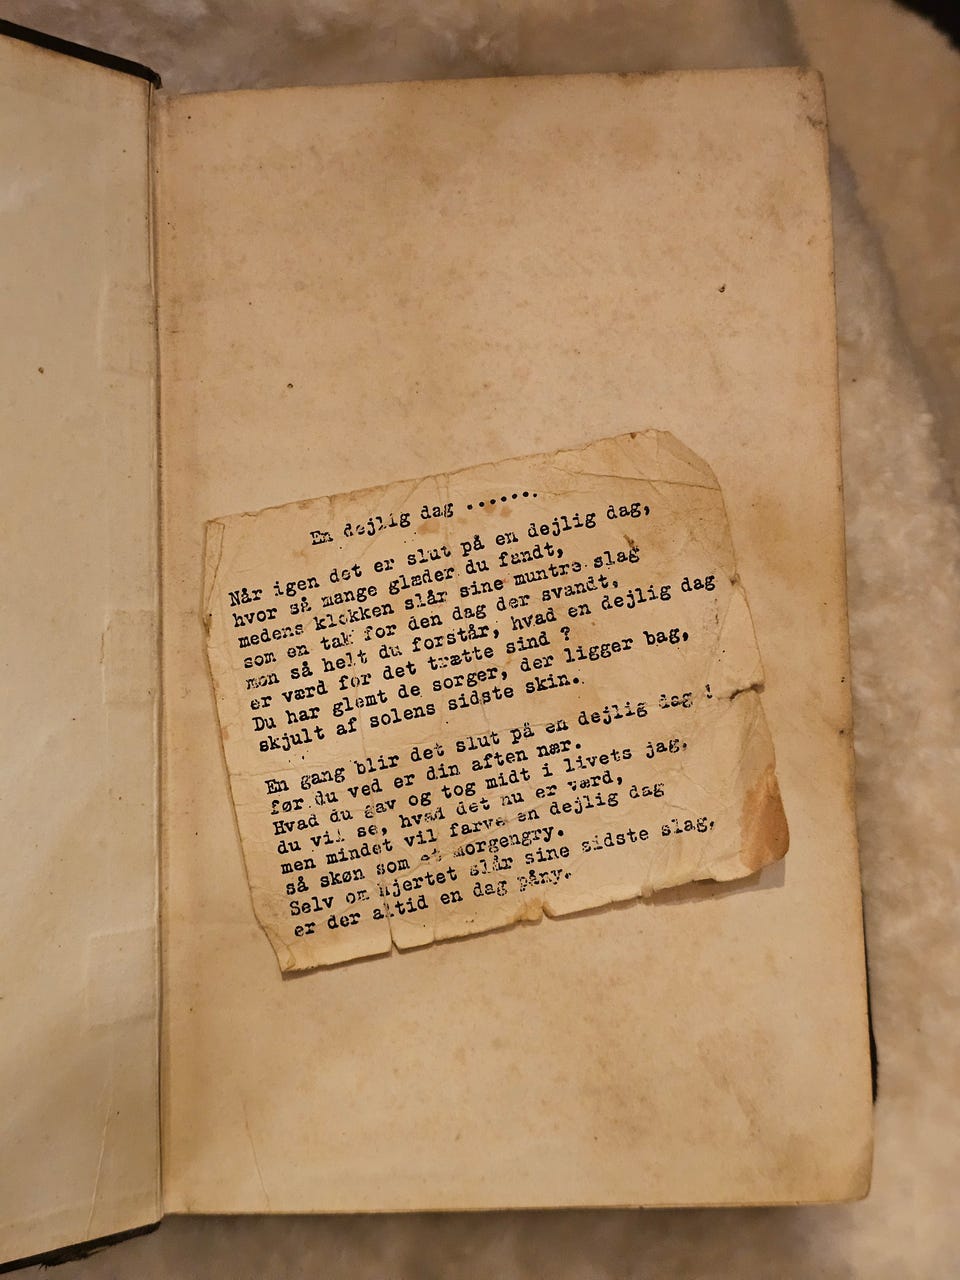 En dejlig dag ......
Når igen det er slut på en dejlig dag,
hvor så mange glæder du fandt,
medens klokken slår sine muntre slag
som en tak for den dag der svandt,
mon så helt du forstår, hvad en dejlig dag
er værd for det trætte sind ?
Du har glemt de sorger, der ligger bag,
skjult af solens sidste skin.
En gang blir det slut på en dejlig dag !
før du ved er din aften nær.
Hvad du gav og tog midt i livets jag,
du vil se, hvad det nu er værd,
men mindet vil farve en dejlig dag
så skøn som et morgengry.
Selv om hjertet slår sine sidste slag,
er der altid en dag påny.